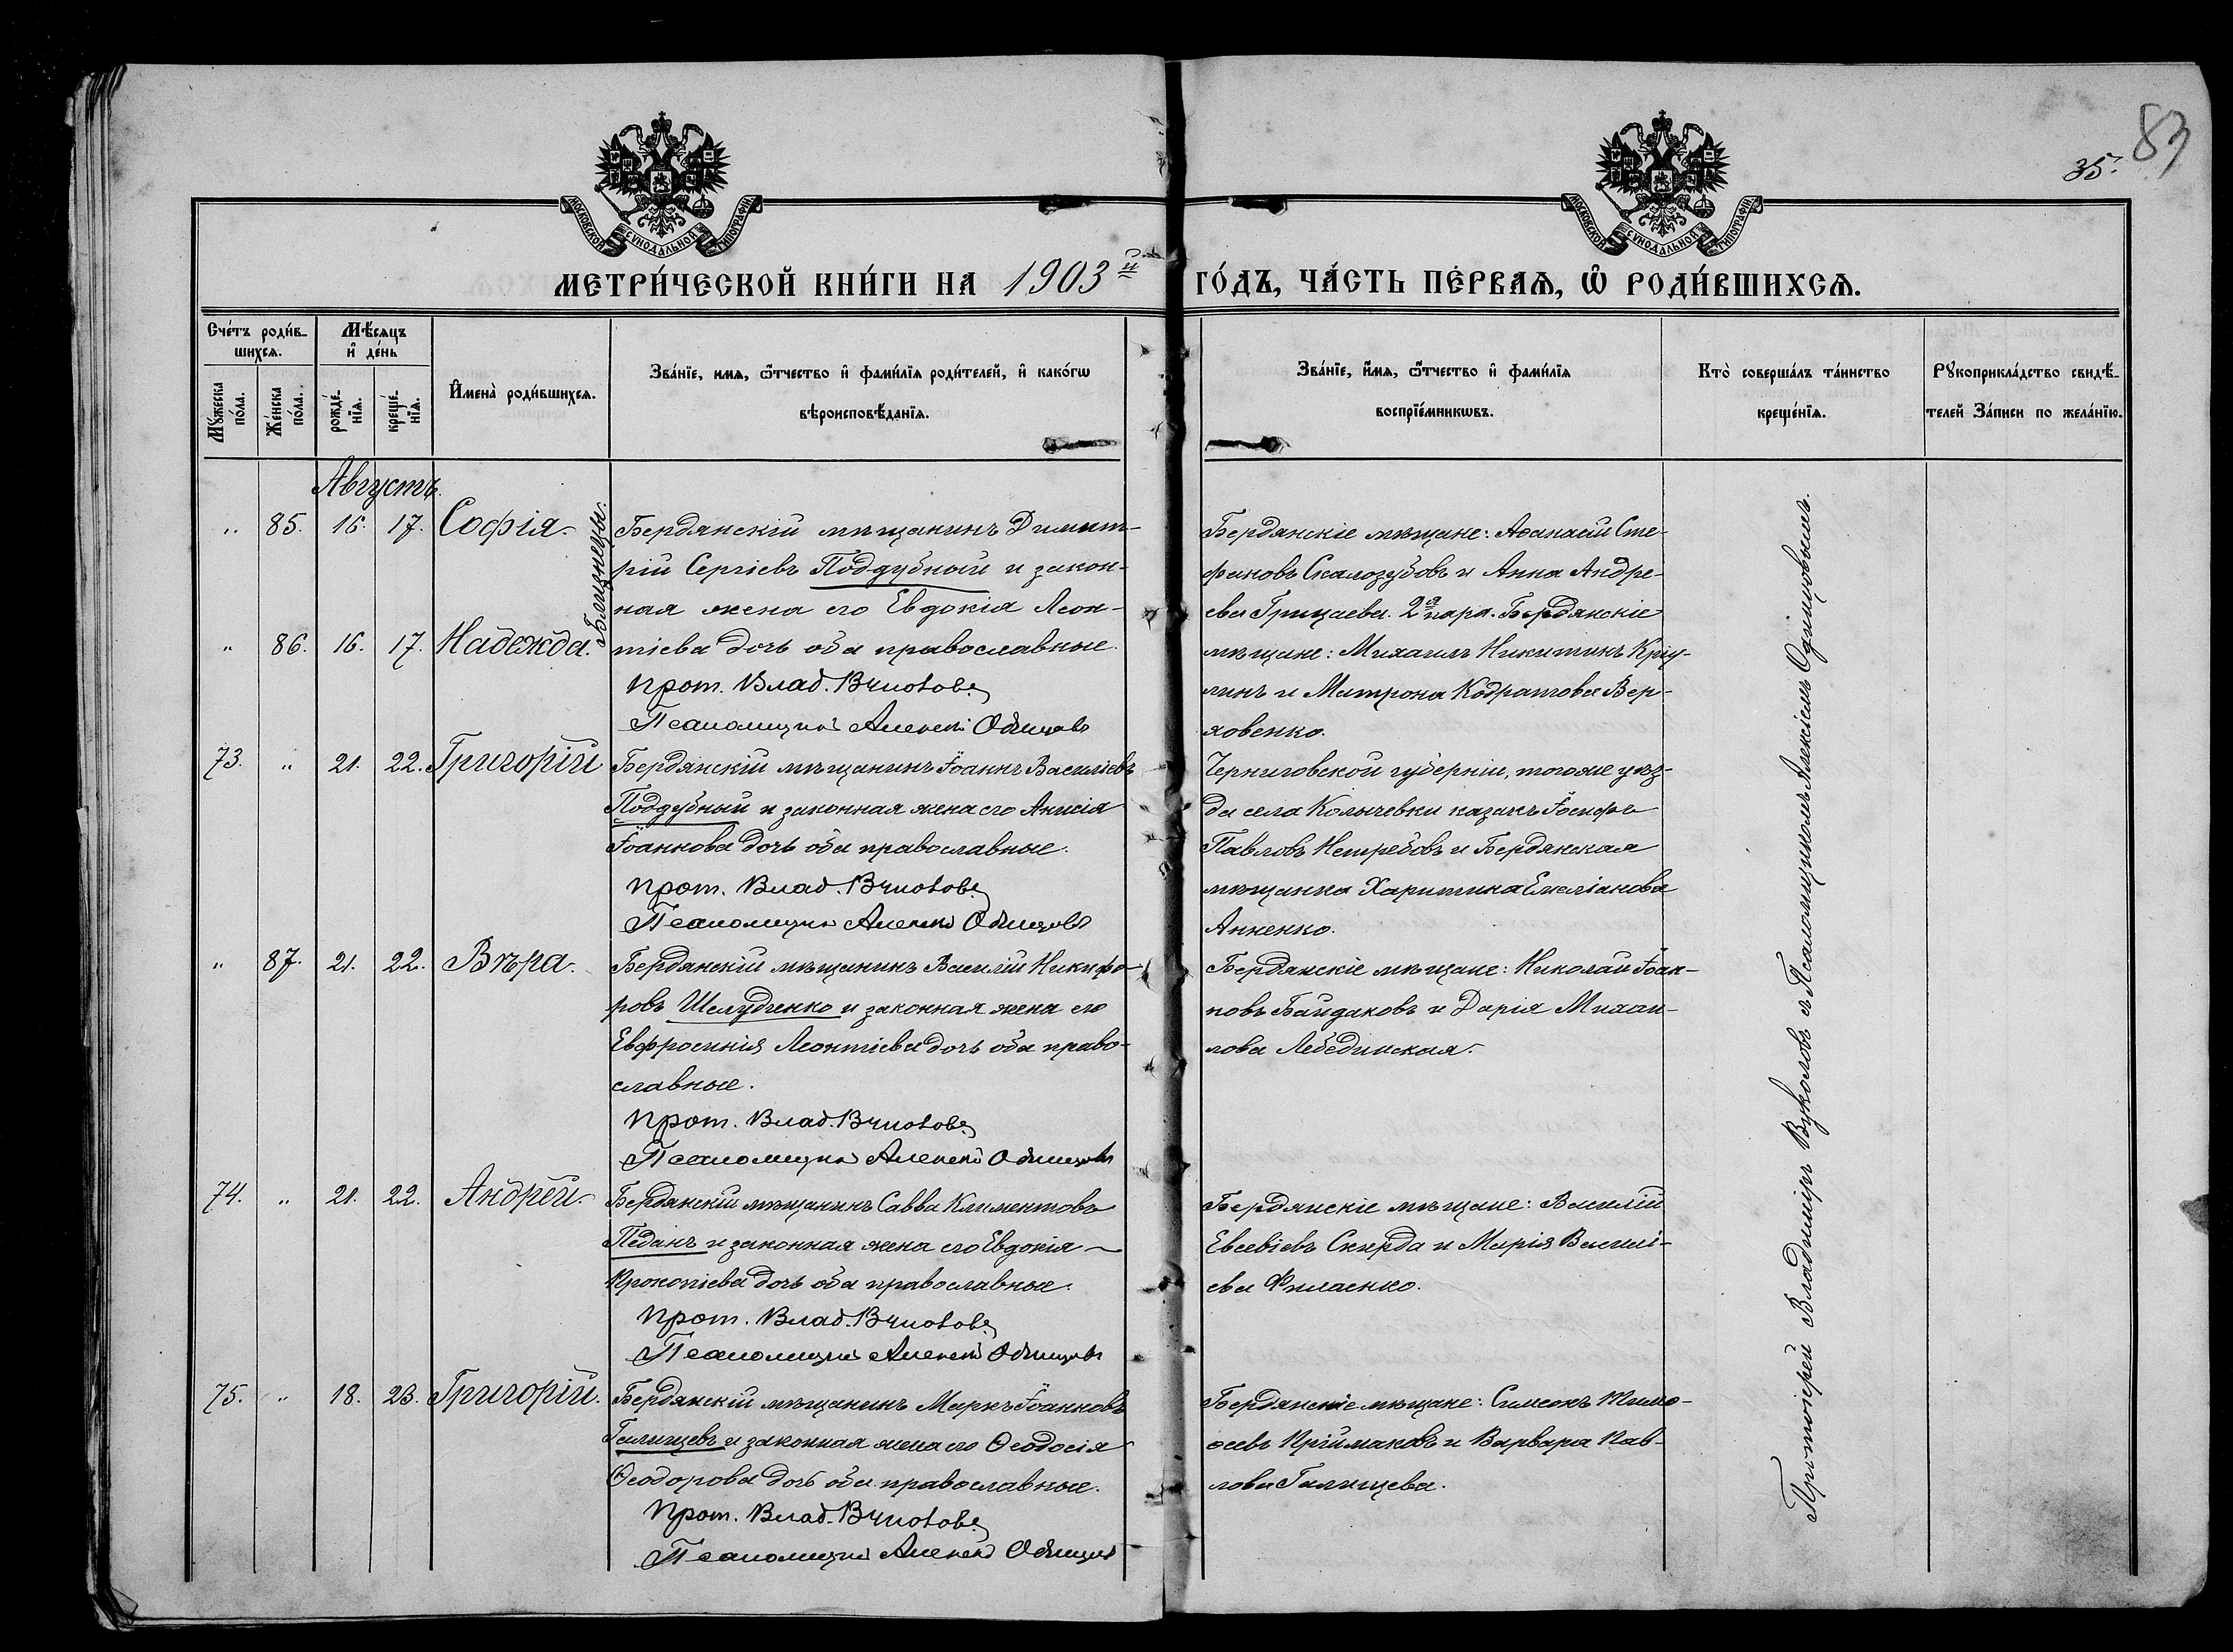 83
35.
МОСКОВСКОЙ СУНОДАЛЬНОЙ ТИПОГРАФІИ
МОСКОВСКОЙ СУНОДАЛЬНОЙ ТИПОГРАФІИ
МЕТРИ́ЧЕСКОЙ КНИ́ГИ НА 1903й ГО́ДЪ, ЧА́СТЬ ПЕ́РВАѦ, Ѡ РОДИ́ВШИХСѦ.
Сче́тъ роди́в-
шихсѧ.
Мѣ́сѧцъ
и҆ де́нь
Мꙋ́жеска
по́ла.
Же́нска
по́ла.
рожде́-
нїѧ.
креще́-
нїѧ.
И҆мена̀ роди́вшихсѧ.
Зва́нїе, имѧ, ѻ҆́тчество и҆ фами́лїѧ роди́телей, и҆ како́гѡ
вѣроисповѣ́данїѧ.
Зва́нїе, и҆́мѧ, ѻ҆́тчество и҆ фами́лїѧ
воспрїе́мникѡвъ.
Кто̀ соверша́лъ та́инство
креще́нїѧ.
Рꙋкоприкла́дство свидѣ́-
телей За́писи по жела́нїю.
Августъ.
„ 85. 16. 17. Софія.
Близнецы.
Бердянскій мѣщанинъ Димит-
рій Сергіевъ Поддубный и закон-
ная жена его Евдокія Леон-
„ 86. 16. 17. Надежда. тіева дочь оба православные.
Прот. Влад. Вуколовъ
Псаломщикъ Алексѣй Одинцовъ
Бердянскіе мѣщане: Аѳанасій Сте-
фановъ Скалозубовъ и Анна Андре-
ева Грицаева. 2я пара. Бердянскіе
мѣщане: Михаилъ Никитинъ
и Матрона Кодратова Вер-
ховенко.
73. „ 21. 22. Григорій Бердянскій мѣщанинъ Іоаннъ Василіевъ
Поддубный и законная жена его Анисія
Іоаннова дочь оба православные.
Прот. Влад. Вуколовъ
Псаломщикъ Алексѣй Одинцовъ
Черниговской губерніи, того же уѣз-
да села Колычевки казакъ Іосифъ
Павловъ Нетребовъ и Бердянская
мѣщанка Харитина Емеліанова
Анненко.
„ 87. 21. 22. Вѣра. Бердянскій мѣщанинъ Василій Никифо-
ровъ Шелудченко и законная жена его
Евфросинія Леонтіева дочь оба право-
славные.
Прот. Влад. Вуколовъ
Псаломщикъ Алексѣй Одинцовъ
Бердянскіе мѣщане: Николай Іоан-
новъ Байдаковъ и Дарія Михаи-
лова Лебединская.
74. „ 21. 22. Андрей. Бердянскій мѣщанинъ Савва Климентовъ
Педанъ и законная жена его Евдокія
Прокопіева дочь оба православные.
Прот. Влад. Вуколовъ
Псаломщикъ Алексѣй Одинцовъ
Бердянскіе мѣщане: Василій
Евсевіевъ Скирда и Марія Василі-
ева Филаенко.
75. „ 18. 23. Григорій. Бердянскій мѣщанинъ Маркъ Іоанновъ
Галищевъ и законная жена его Ѳеодосія
Ѳеодорова дочь оба православные.
Прот. Влад. Вуколовъ
Псаломщикъ Алексѣй Одинцовъ
Бердянскіе мѣщане: Симеонъ Тимо-
ѳеевъ Пріймаковъ и Варвара Пав-
лова Галищева.
Протоіерей Владиміръ Вуколовъ съ Псаломщикомъ Алексіемъ Одинцовымъ.